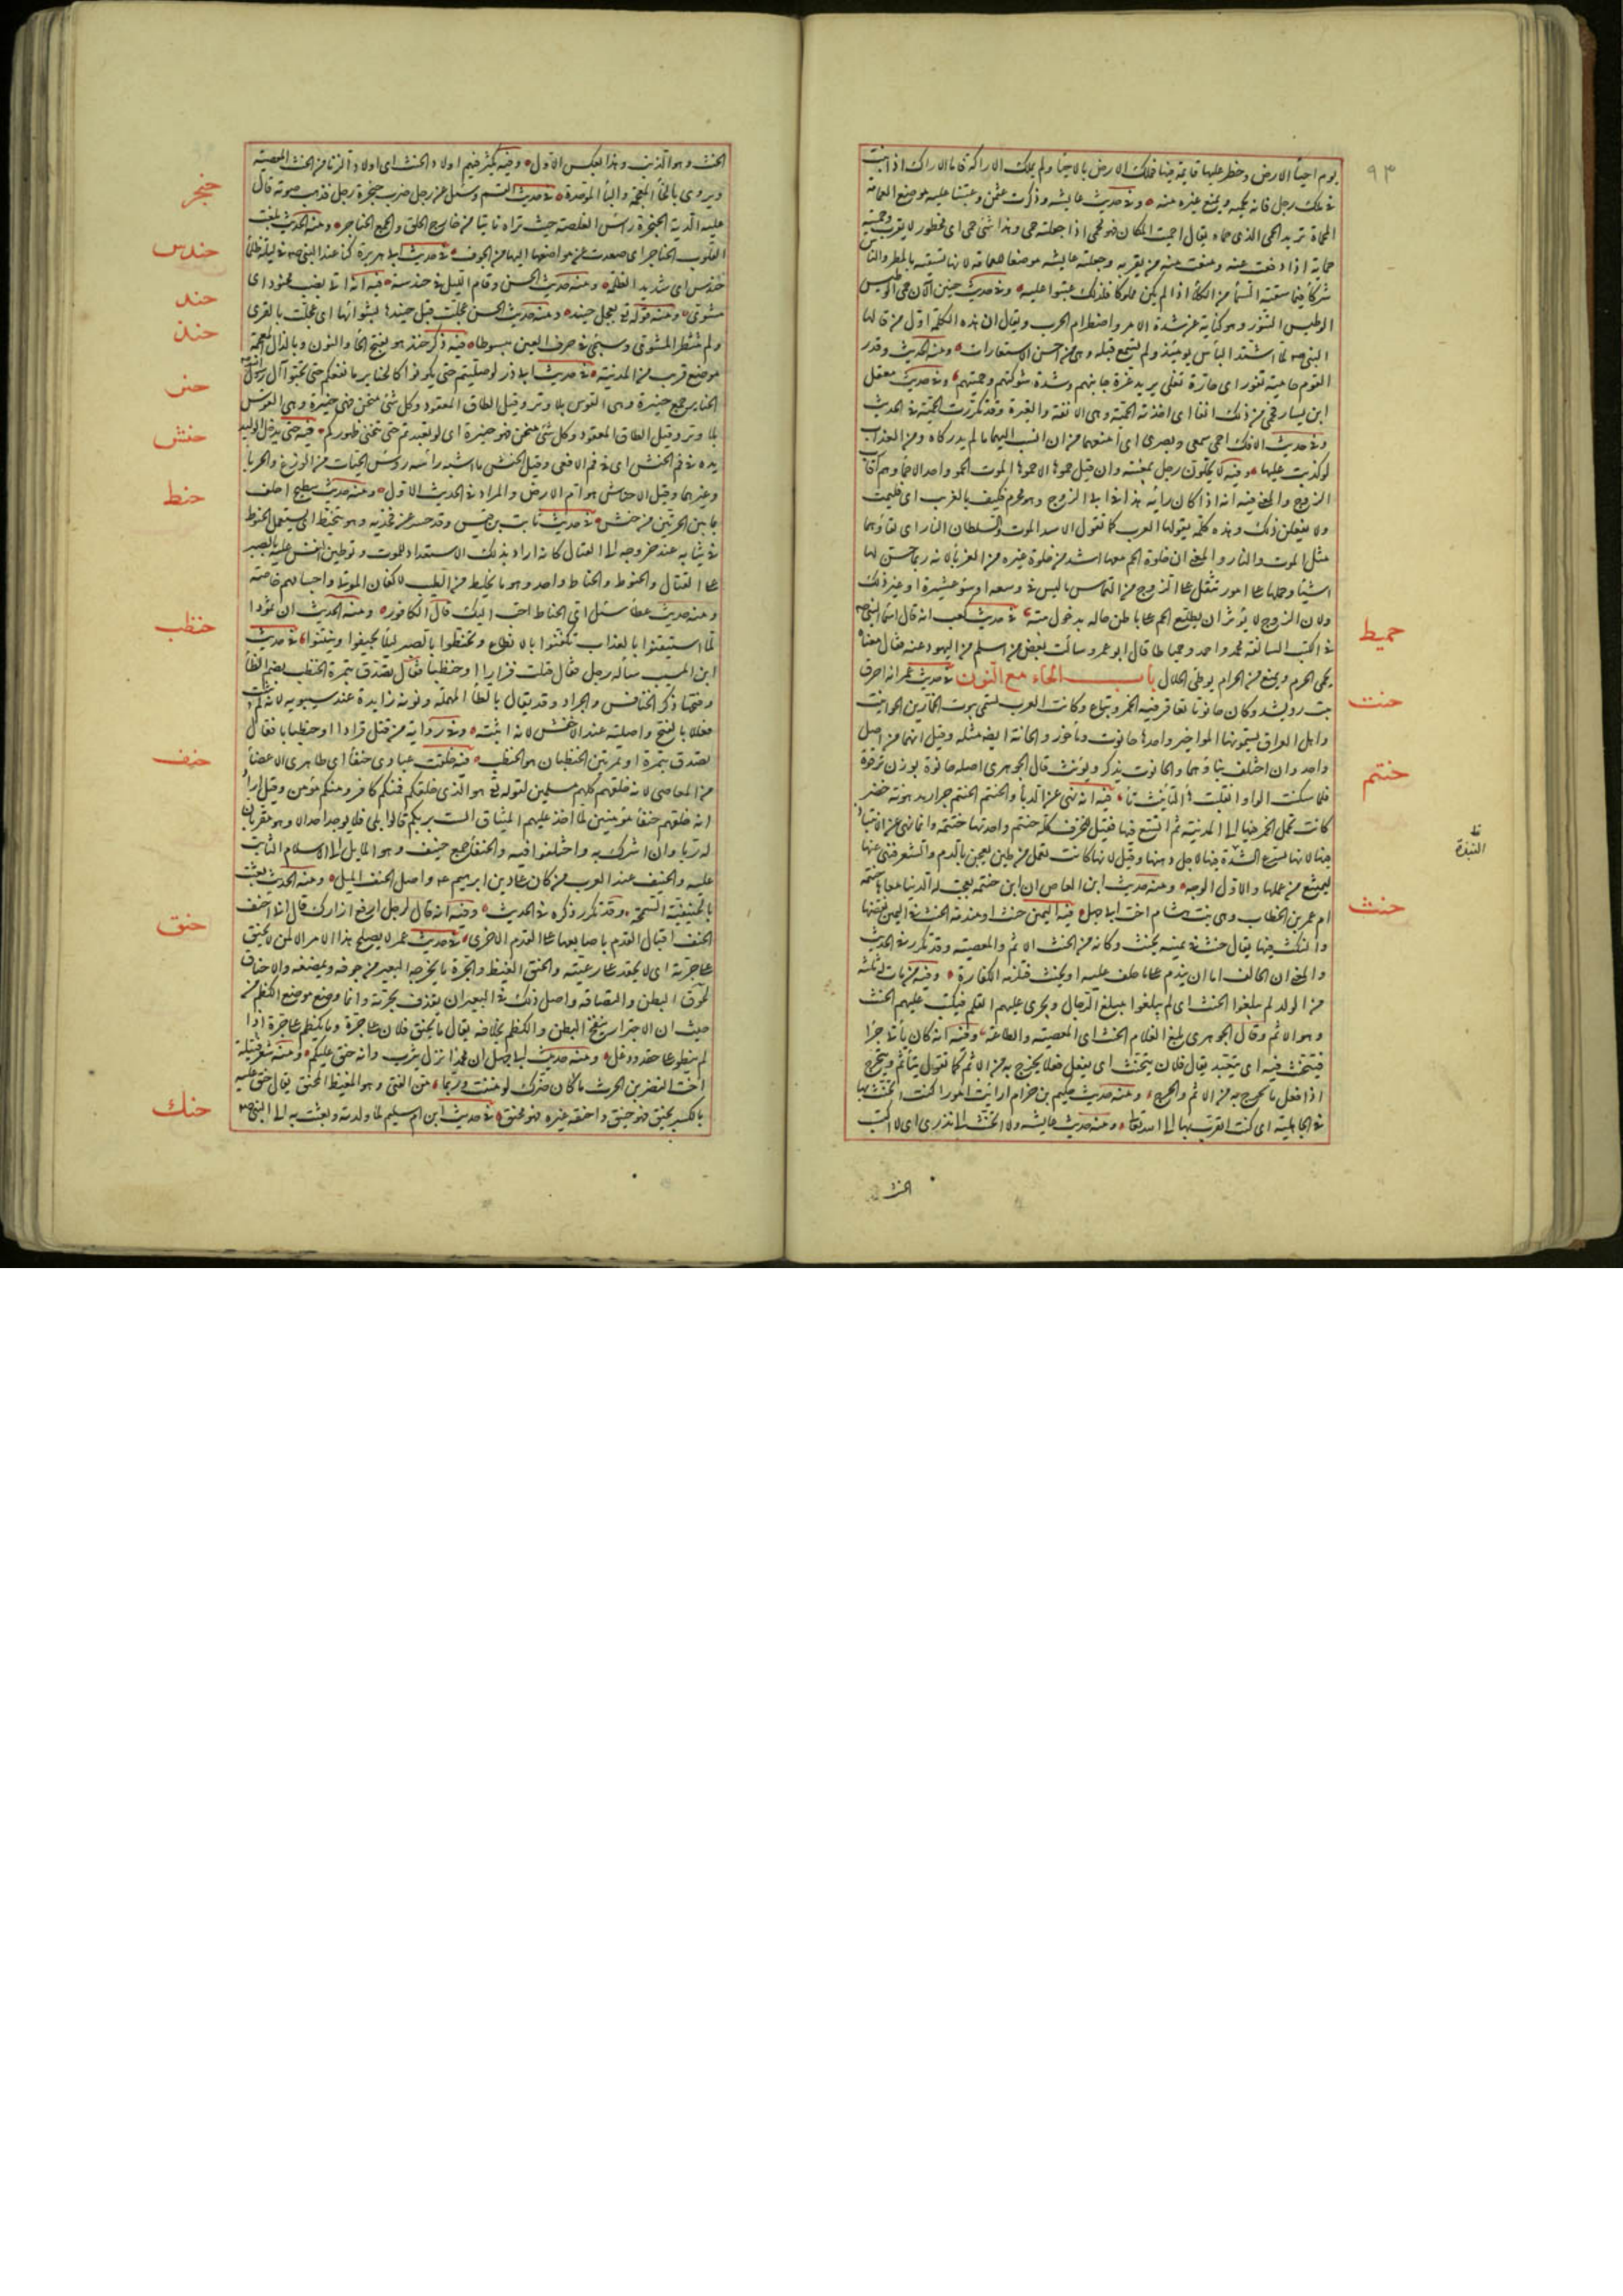 ٩٣
يوم احيا الارض وحظر عليها قايمة فيها فملك الارض بالاحيا ولم يملك الاراكة فاما الاراك اذا نبت
في ملك رجل فانه يحميه ويمنع غيره منه وفي حديث عايشه وذكرت عثمن وعتبنا عليه موضع الغمامة
المحماة تريد الحمى الذي حماه يقال احميت المكان فهو محمى اذا جعلته حمى وهذا شئ حمى اى محظور لا يقرب وحميته
حماية اذا دفعت عنه ومنعت منه من يقربه وجعلته عايشه موضعا للغمامة لانها تسقيه بالمطر والناس
شركا فيما سقته السما من الكلأ اذا لم يكن مملوكا فلذلك عتبوا عليه وفي حديث حنين الآن حمى الوطيس
الوطيس التنور وهو كناية عن شدة الامر واضطرام الحرب ويقال ان هذه الكلمة اول من قالها
النبي صم لما اشتد البأس يومئذ ولم تسمع قبله وهي من احسن الاستعارات ومنه الحديث وقدر
القوم حامية تفور اى حارة تغلى يريد عزة جانبهم وشدة شوكتهم وحميتهم وفي حديث معقل
ابن يسار فحمى من ذلك انفا اى اخذته الحمية وهي الانفة والغيرة وقد تكررت الحمية في الحديث
وفي حديث الافك احمى سمعي وبصرى اى امنعهما من ان انسب اليهما ما لم يدركاه ومن العذاب
لو كذبت عليهما وفيه لا يخلون رجل بمغيبة وان قيل حموها الا حموها الموت الحمو واحد الاحما وهم اقارب
الزوج والمعنى فيه انه اذا كان رأيه هذا في اب الزوج وهو محرم فكيف بالغريب اى فليمت
ولا يفعلن ذلك وهذه كلمة يقولها العرب كما تقول الاسد الموت والسلطان النار اى لقاؤهما
مثل الموت والنار والمعنى ان خلوة الحم معها اشد من خلوة غيره من الغربا لانه ربما حسن لها
اشيا وحملها على امور تثقل على الزوج من التماس ما ليس في وسعه او سؤ عشيرة او غير ذلك
ولان الزوج لا يؤثر ان يطلع الحم على باطن حاله بدخول بيته في حديث كعب انه قال اسما النبي صم
في الكتب السالفة محمد واحمد وحمياطا قال ابو عمرو سألت بعض من اسلم من اليهود عنه فقال معناه
يحمى الحرم ويمنع من الحرام يوطئ الحلال باب الحاء مع النون في حديث عمر انه احرق
بيت رويشد وكان حانوتا تعاقر فيه الخمر وتباع وكانت العرب تسمى بيوت الخمارين الحوانيت
واهل العراق يسمونها المواخير واحدها حانوت وماخور والحانة ايضا مثله وقيل انهما من اصل
واحد وان اختلف بناؤهما والحانوت يذكر ويونث قال الجوهرى اصله حانوة بوزن ترقوة
فلما سكنت الواو انقلبت ها التأنيث تا فيه انه نهى عن الدبا والحنتم الحنتم جرار مدهونة خضر
كانت تحمل الخمر فيها الى المدينة ثم اتسع فيها فقيل للخزف كله حنتم واحدتها حنتمة وانما نهى عن الانتباذ
فيها لانها تسرع الشدة فيها لاجل دهنها وقيل لانها كانت تعمل من طين يعجن بالدم والشعر فنهى عنها
ليمتنع من عملها والاول الوجه ومنه حديث ابن العاص ان ابن حنتمة بعجت له الدنيا معاها حنتمة
ام عمر بن الخطاب وهي بنت هشام اخت ابي جهل فيه اليمين حنث او مندمة الحنث في اليمين نقضها
والنكث فيها يقال حنث في يمينه يحنث وكانه من الحنث الاثم والمعصية وقد تكرر في الحديث
والمعنى ان الحالف اما ان يندم على ما حلف عليه او يحنث فتلزمه الكفارة وفيه من مات له ثلثة
من الولد لم يبلغوا الحنث اى لم يبلغوا مبلغ الرجال ويجرى عليهم القلم فيكتب عليهم الحنث
وهو الاثم وقال الجوهرى بلغ الغلام الحنث اى المعصية والطاعة وفيه انه كان يأتي حرا
فيتحنث فيه اى يتعبد يقال فلان يتحنث اى يفعل فعلا يخرج به من الاثم كما تقول يتأثم ويتحرج
اذا فعل ما يخرج به من الاثم والحرج ومنه حديث حكيم بن حزام ارايت امورا كنت اتحنث بها
في الجاهلية اى كنت اتقرب بها الى الله تعالى ومنه حديث عايشه ولا اتحنث الى نذرى اى لا اكتسب
الحنث
حميط
حنت
حنتم
النبذة
حنث
الحنث وهو الذنب وهذا بعكس الاول وفيه يكثر فيهم اولاد الحنث اى اولاد الزنا من الحنث المعصية
ويروى بالخا المعجمة والبا الموحدة في حديث القسم وسئل عن رجل ضرب حنجرة رجل فذهب صوته قال
عليه الدية الحنجرة راس الغلصمة حيث تراه ناتيا من خارج الحلق والجمع الحناجر ومنه الحديث بلغت
القلوب الحناجر اى صعدت عن مواضعها اليها من الخوف في حديث ابي هريرة كنا عند النبي صم في ليلة ظلما
حندس اى شديد الظلمة ومنه حديث الحسن وقام الليل في حندسه فيه انه اتي بضب محنوذ اى
مشوي ومنه قوله تعالى بعجل حنيذ ومنه حديث الحسن عجلت قبل حنيذها بشوائها اى عجلت بالقرى
ولم تنتظر المشوى وسيجئ في حرف العين مبسوطا فيه ذكر حنذ هو بفتح الحا والنون وبالذال المعجمة
موضع قريب من المدينة في حديث ابي ذر لو صليتم حتى تكونوا كالحناير ما نفعكم حتى تحبوا آل رسول الله صم
الحناير جمع حنيرة وهي القوس بلا وتر وقيل الطاق المعقود وكل شئ منحن فهو حنيرة اى لو تعبدتم حتى تنحني ظهوركم فيه حتى يدخل الوليد
يده في فم الحنش اى في فم الافعى وقيل الحنش ما اشبه رأسه رؤس الحيات من الوزغ والحربا
وغيرهما وقيل الاحناش هوام الارض والمراد في الحديث الاول ومنه حديث سطيح احلف
بما بين الحرتين من حنش في حديث ثابت بن قيس وقد حسر عن فخذيه وهو يتحنط اى يستعمل الحنوط
في ثيابه عند خروجه الى القتال كانه اراد بذلك الاستعداد للموت وتوطين النفس عليه بالصبر
على القتال والحنوط والحناط واحد وهو ما يخلط من الطيب لاكفان الموتى واجسامهم خاصة
ومنه حديث عطا سئل اى الحناط احب اليك قال الكافور ومنه الحديث ان ثمود
لما استيقنوا بالعذاب تكفنوا بالانطاع وتحنطوا بالصبر ليلا يجيفوا وينتنوا في حديث
ابن المسيب سأله رجل فقال قتلت قرادا او حنظبا فقال تصدق بتمرة الحنظب بضم الظا
وفتحها ذكر الخنافس والجراد وقد يقال بالطا المهملة ونونه زايدة عند سيبويه لانه لم يثبت
فعللا بالفتح واصلية عند الاخفش لانه اثبته وفي رواية من قتل قرادا او حنظبانا
تصدق بتمرة او تمرتين الحنظبان هو الحنظب فيه خلقت عبادى حنفا اى طاهرى الاعضا
من المعاصى لا انه خلقهم كلهم مسلمين لقوله تعالى هو الذى خلقكم فمنكم كافر ومنكم مؤمن وقيل اراد
انه خلقهم حنفا مؤمنين لما اخذ عليهم الميثاق الست بربكم قالوا بلى فلا يوجد احد الا وهو مقر بان
له ربا وان اشرك به واختلفوا فيه والحنفا جمع حنيف وهو المايل الى الاسلام الثابت
عليه والحنيف عند العرب من كان على دين ابرهيم عم واصل الحنف الميل ومنه الحديث بعثت
بالحنيفية السمحة وقد تكرر ذكره في الحديث وفيه انه قال لرجل ارفع ازارك قال اني احنف
الحنف اقبال القدم باصابعها على القدم الاخرى في حديث عمر لا يصلح هذا الامر الا لمن لا يحنق
على جرته اى لا يحقد على رعيته والحنق الغيظ والجرة ما يخرجه البعير من جوفه ويمضغه والاحناق
لحوق البطن والتصاقه واصل ذلك في البعير ان يقذف بجرته وانما وضع موضع الكظم من
حيث ان الاجترار ينفخ البطن والكظم بخلافه يقال ما يحنق فلان على جرة وما يكظم على جرة اذا
لم ينطو على حقد ودغل ومنه حديث ابي جهل ان محمدا نزل يثرب وانه حنق عليكم ومنه شعر قتيلة
اخت النضر بن الحرث ما كان ضرك لو مننت وربما من الفتى وهو المغيظ المحنق يقال حنق عليه
بالكسر يحنق فهو حنق واحنقه غيره فهو محنق في حديث ابن ام سليم لما ولدته وبعثت به الى النبي صم
حنجر
حندس
حند
حنذ
حنر
حنش
حنط
حنظب
حنف
حنق
حنك